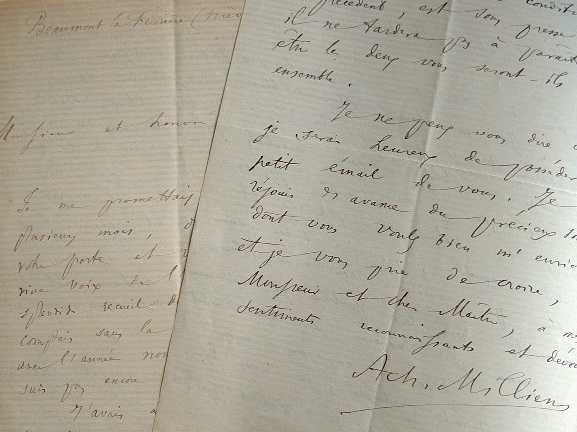 Beaumont la Ferrière (Nièv
Monsieur et honoré
Je me promettais
plusieurs mois, d
votre porte et
vive voix de l
splendide recueil d
comptais sans la
avec l'année nou
suis pas encore
J'avais a
précédent, est sous presse
il ne tardera pas à paraît
être les deux vous seront-ils
ensemble.
Je ne peux vous dire
je serais heureux de posséder
petit émail de vous. Je
réjouis d'avance du précieux
dont vous voulez bien m'enric
et je vous prie de croire,
Monsieur et cher Maître, à me
sentiments reconnaissants et dévou
Ach. Milliens